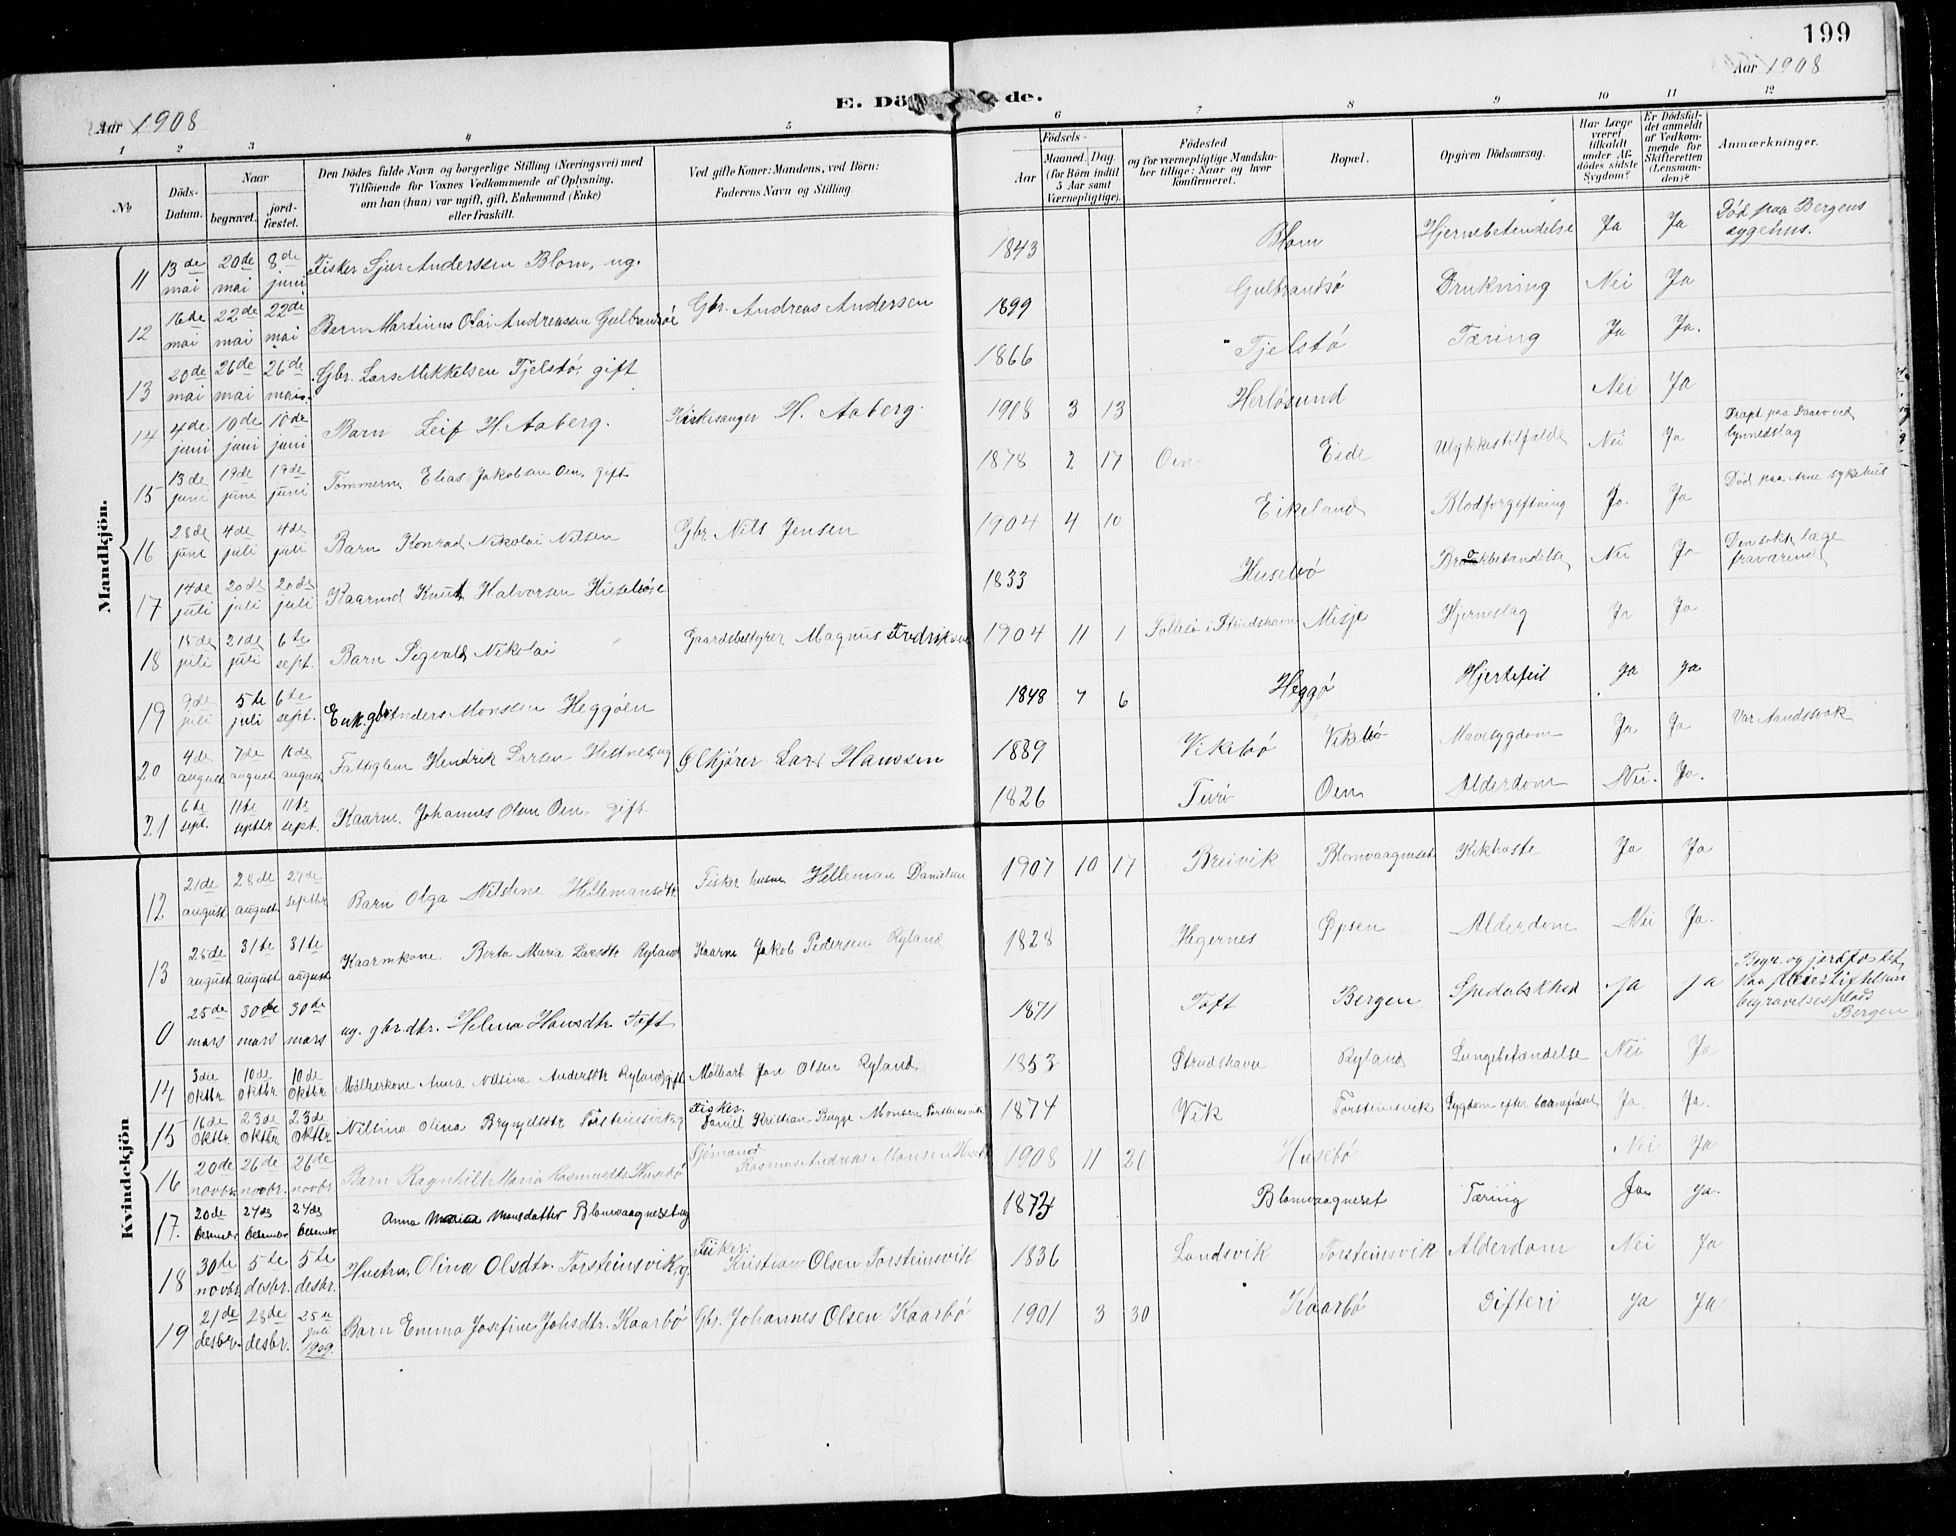 199
Aar 1908
Aar 1908
E. Dö de.
1 2 3 4 5 6 7 8 9 10 11 12
№
Döds-Datum.
Naar
begravet.
jord-fæstet.
Den Dödes fulde Navn og borgerlige Stilling (Næringsvei) med
Tilföiende for Voxnes Vedkommende af Oplysning,
om han (hun) var ugift, gift, Enkemand (Enke)
eller fraskilt.
Ved gifte Koner: Mandens, ved Börn:
Faderens Navn og Stilling.
Födsels-
Aar
Maaned. Dag.
(for Börn indtil
5 Aar samt
Værnepligtige).
Födested
og for værnepligtige Mandska-
ber tillige: Naar og hvor
konfirmeret.
Bopæl.
Opgiven Dödsaarsag.
Har Læge
været
tilkaldt
under Af-
dödes sidste
Sygdom?
Er Dödsfal-
det anmeldt
af Vedkom-
mende for
Skifteretten
(Lensman-
den)?
Anmærkninger.
Mandkjön.
11 13de mai 20de mai 8de juni Fisker Sjur Anderssen Blom, ug. 1843 Blom Hjernebetendelse Ja Ja Död paa Bergens sygehus.
12 16de mai 22de mai 22de mai Barn Martinus Olai Andreassen Gulbransöe Gbr. Andreas Andersen 1899 Gulbrandsö Drukning Nei Ja
13 20de mai 26de mai 26de mai. Gbr. Lars Mikkelsen Tjelstö, gift 1866 Tjelstö Tæring Ja Ja.
14 4de juni 10de juni 10de juni Barn Leif H. Aaberg. Kirkesanger H. Aaberg. 1908 3 13 Herlösund Nei Ja
15 13de juni 17de juni 17de juni Tömmerm. Elias Jakobsen Oen, gift 1878 2 17 Oen Eide Ulykkestilfælde Nei Ja Dræpt paa ved lynnedslag
16 28de juni 4de juli 4de juli Barn Konrad Nikolai Nilsen Gbr. Nils Jensen 1904 4 10 Eikeland Blodforgiftning Ja Ja Död paa Arne sykehus
17 14de juli 20de juli 20de juli Kaarmd Knut Halvorsen Huseböe 1833 Husebö Nei Ja Den sökte læge fraværend
18 15de juli 21de juli 6te sept. Barn Sigvald Nikolai Gaardsbestyrer Magnus Fredriksen 1904 11 1 Tollesö i Strudshavn Misje Hjerneslag Ja Ja
19 9de juli 5te juli 6te sept. Enk.gbr Anders Monsen Heggöen 1848 7 6 Heggö Hjertefeil Ja Ja
20 4de august 7de august 16de august Fattiglem Hendrik Larsen Hestnes, ug Ølkjører Lars Hanssen 1889 Vikebö Vikebö Mavesygdom Ja Ja Var Aandssvak
21 6te sept. 11te septbr 11te sept. Kaarm. Johannes Olsen Oen, gift 1826 Turö Oen Alderdom Nei. Ja.
Kvindekjön
12. 21de august 28de august 27de septbr Barn Olga Nilsine Hellemansdtr. Fisker husm. Helleman Danielsen 1907 10 17 Breivik Blomvaagneset Kikhoste Ja Ja
13 25de august 31te august 31te august Kaarmkone. Berta Maria Larsdtr Ryland Kaarm Jakob Pedersen Ryland 1828 Hegernes Øpsen Alderdom Nei Ja.
0 25de mars 30de mars 30de mars ug. gbr.dtr. Helena Hansdtr Toft 1871 Toft Bergen Spedalskhed Ja Ja Begr. og jordfæstet paa Pleiestiftelsen begravelsesplads Bergen
14 3die oktbr. 10de oktbr. 10de oktbr. Møllerkone Anna Nilsina Andersdtr Ryland, gift Mölbart Jan Olsen Ryland 1853 Strudshavn Ryland Lungebetændelse Nei Ja
15 16de oktbr. 23de oktbr. 23de oktbr. Nilsina Olina Brynyldsdtr Torsteinsvik, g Fisker. Daniel Kristian Bugge Monsen Torsteinsvik 1874 Vik Torsteinsvik Sygdom efter barnfødsel Ja. Ja.
16 20de novbr. 26de novbr. 26de novbr Barn Ragnhilt Maria Rasmusdtr Husebö Sjömand Rasmus Andreas Monsen Husebö 1908 11 20 Husebö Nei Ja
17. 20de desember 27de desember 27de desember Anna Maria Monsdatter Blomvaagneset ug 1873 Blomvaagneset Tæring Ja Ja.
18 30te novbr 5te desbr. 5te desbr. Hustru, Olina Olsdtr. Torsteinsvik, g. Fisker: Kristian Olsen Torsteinsvik 1836 Landsvik Torsteinsvik Alderdom Nei Ja
19 21de desbr. 28de desbr. 25de juli 1909. Barn Emma Josefine Johsdtr. Kaarbö Gbr. Johannes Olsen Kaarbö 1901 3 30 Kaarbö Difteri Ja Ja